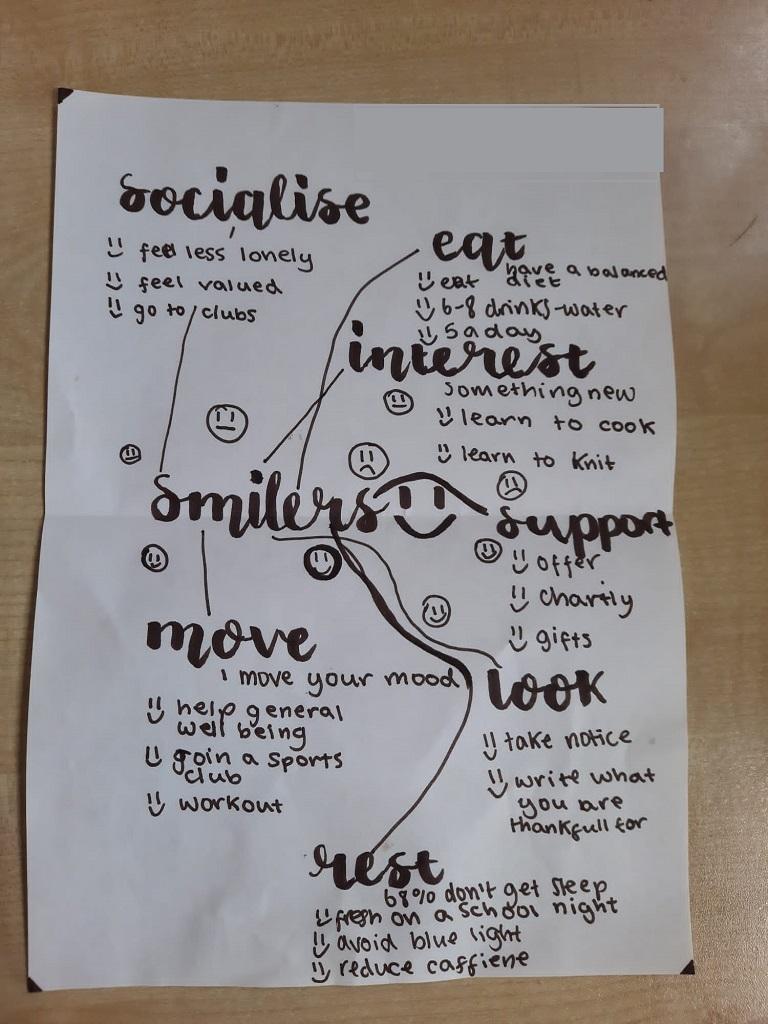 socialise
feel less lonely
feel valued
go to clubs
eat
eat have a balanced
diet
6-8 drinks-water
5 a day
interest
something new
learn to cook
learn to knit
smilers
support
offer
chartiy
gifts
move
move your mood
help general
well being
join a sports
club
workout
look
take notice
write what
you are
thankfull for
rest
68% don't get sleep
fresh on a school night
avoid blue light
reduce caffiene